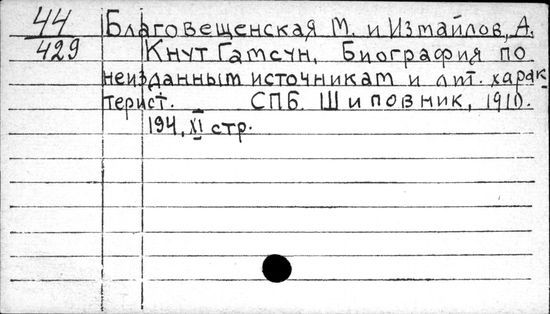 44 Благовещенская М. и Измайлов, А.
429 Кнут Гамсун. Биография по
неизданным источникам и лит. харак-
терист. СПБ. Шиповник, 1910.
194, XI стр.